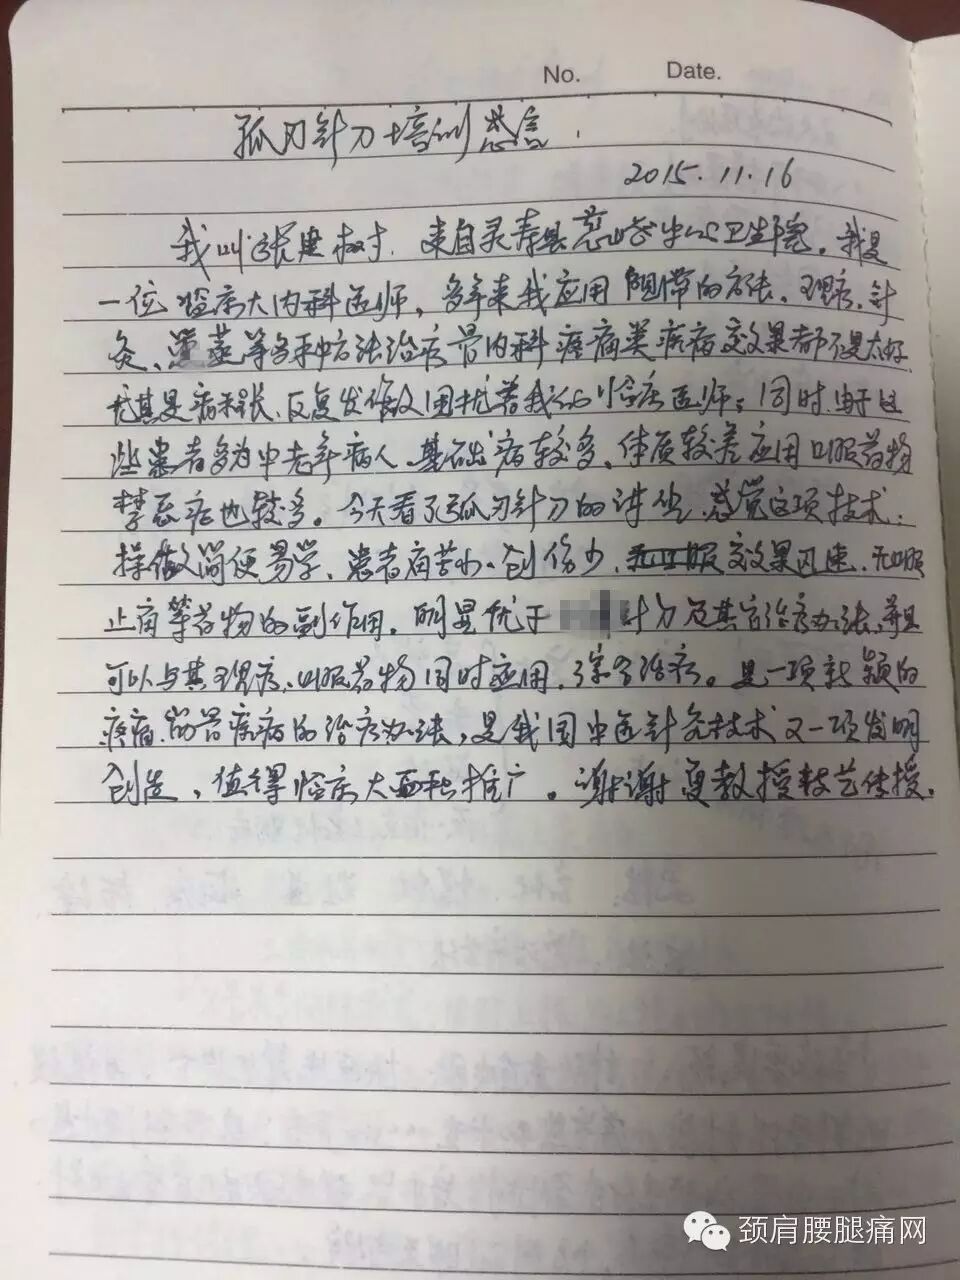 No. Date.
弧刃针刀培训感言.
2015.11.16
我叫张建树.来自灵寿县慈峪中心卫生院。我是
一位临床大内科医师,多年来我应用阻滞的方法。理疗.针
灸、熏蒸等各种方法治疗骨内科疼痛类疾病效果都不是太好
尤其是病程长、反复发作又困扰着我们临床医师;同时.由于这
些患者多为中老年病人.基础病较多、体质较差应用口服药物
禁忌症也较多。今天看了弧刃针刀的讲坐.感觉这项技术:
操做简便易学、患者痛苦小、创伤少、效果迅速.无口服
止痛等药物的副作用.明显优于针刀及其它治疗办法,并且
可以与其理疗、口服药物同时应用,综合治疗。是一项新颖的
疼痛.的骨疾病的治疗办法,是我国中医针灸技术又一项发明
创造、值得临床大面积推广。谢谢夏教授技艺传授.
颈肩腰腿痛网